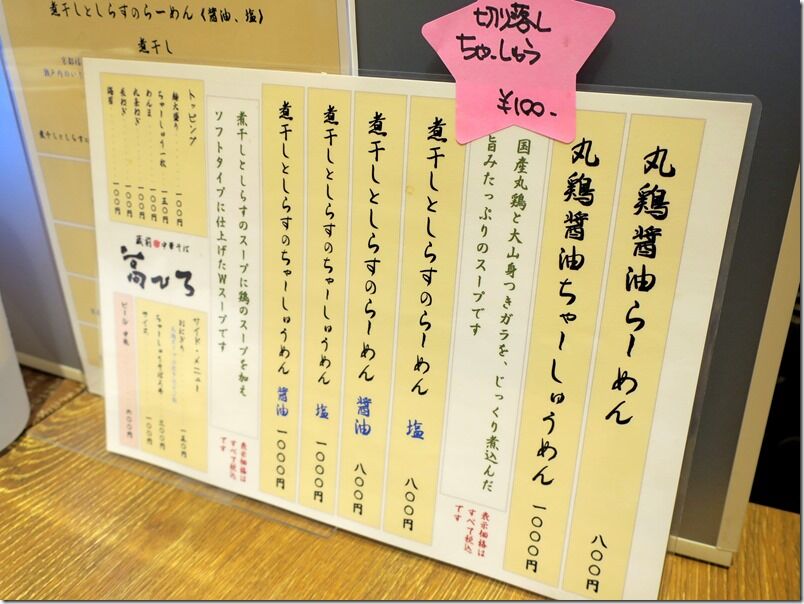 煮干しとしらすのらーめん(醤油、塩)
煮干し
切り落し
ちゃーしゅう
¥100-
丸鶏醤油らーめん 八〇〇円
丸鶏醤油ちゃーしゅうめん 一〇〇〇円
国産丸鶏と大山身つきガラを、じっくり煮込んだ
旨みたっぷりのスープです
表示価格は
すべて税込
です
煮干しとしらすのらーめん 塩 八〇〇円
煮干しとしらすのらーめん 醤油 八〇〇円
煮干しとしらすのちゃーしゅうめん 塩 一〇〇〇円
煮干しとしらすのちゃーしゅうめん 醤油 一〇〇〇円
煮干しとしらすのスープに鶏のスープを加え
ソフトタイプに仕上げたWスープです
表示価格は
すべて税込
です
トッピング
麺大盛り 一〇〇円
ちゃーしゅう一枚 一五〇円
めんま 一〇〇円
九条ねぎ 一〇〇円
玉ねぎ 一〇〇円
海苔 一〇〇円
蔵前 中華そば
高ひろ
サイド・メニュー
おにぎり 一五〇円
ちゃーしゅうそぼろ丼 三〇〇円
ライス 一〇〇円
ビール 中瓶 六〇〇円